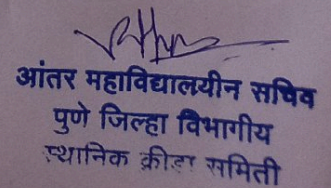 आंतर महाविद्यालयीन सचिव
पुणे जिल्हा विभागीय
स्थानिक क्रीडा समिती